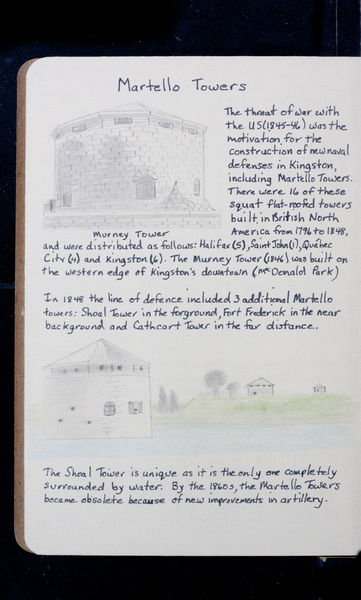 Martello Towers
The threat of war with
the US (1845-46) was the
motivation for the
construction of new naval
defenses in Kingston,
including Martello Towers.
There were 16 of these
squat flat-roofed towers
built in British North
Murney Tower
America from 1796 to 1848,
and were distributed as follows: Halifax (5), Saint John (1), Québec
City (4) and Kingston (6). The Murney Tower (1846) was built on
the western edge of Kingston's downtown (McDonald Park)
In 1848 the line of defence included 3 additional Martello
towers: Shoal Tower in the forground, Fort Frederick in the near
background and Cathcart Tower in the far distance.
The Shoal Tower is unique as it is the only one completely
surrounded by water. By the 1860s, the Martello Towers
became obsolete because of new improvements in artillery.